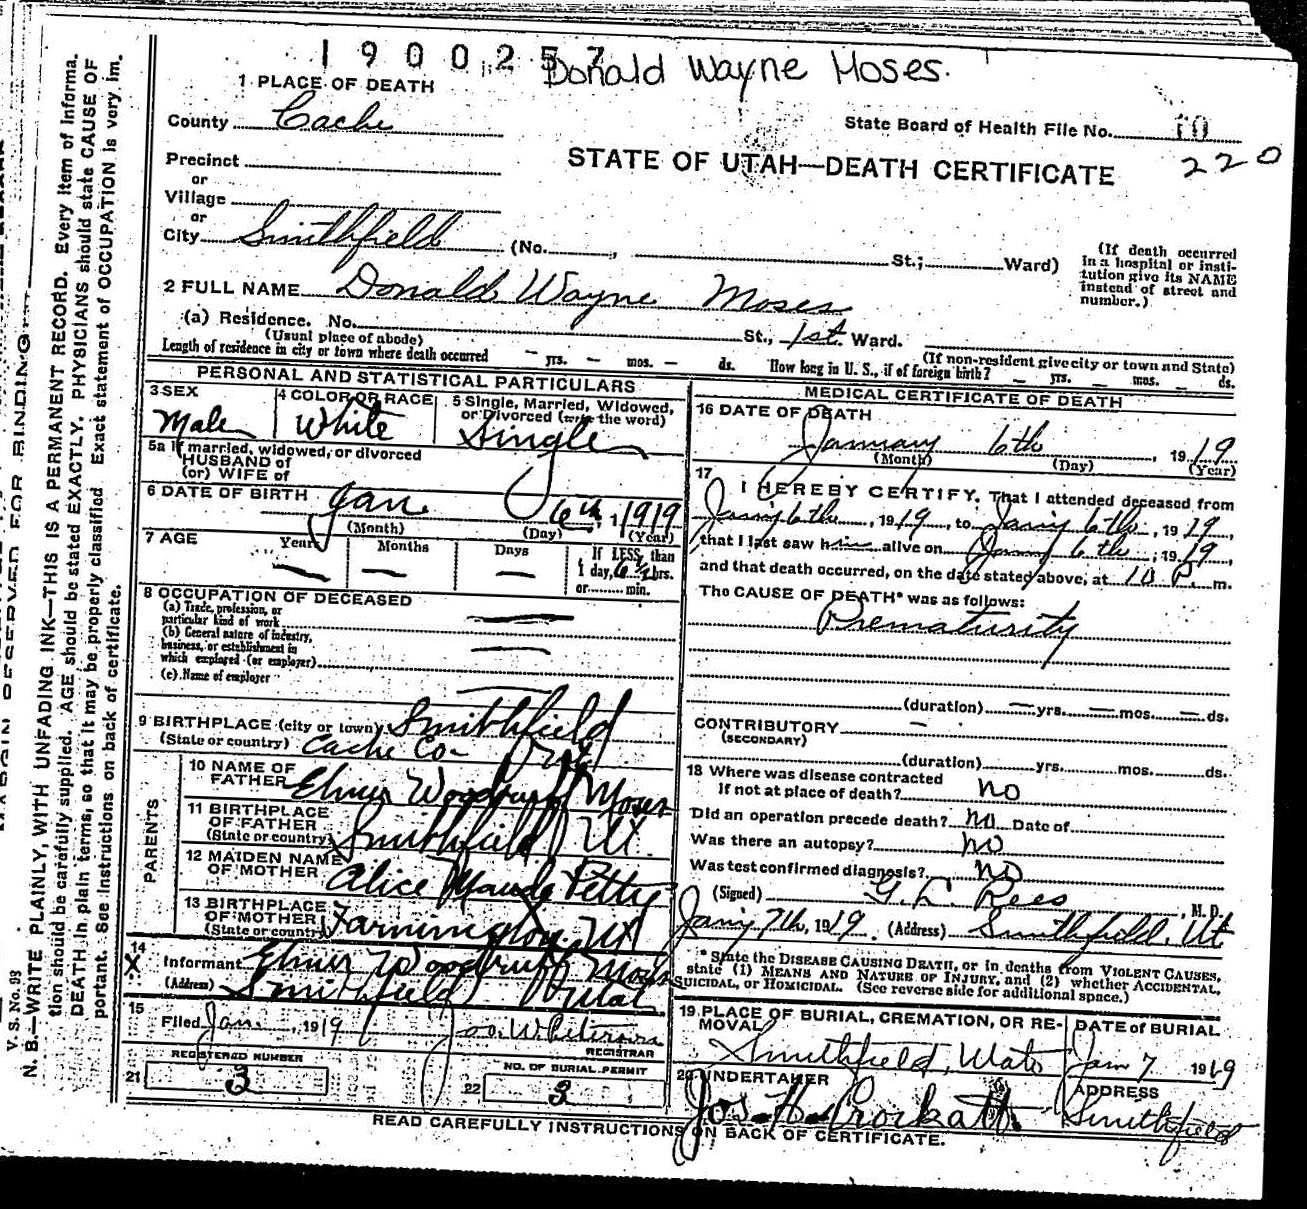 1900257 Donald Wayne Moses.
1 PLACE OF DEATH
County Cache
State Board of Health File No. 70
220
STATE OF UTAH—DEATH CERTIFICATE
Precinct
or
Village
or
City Smithfield (No. , St.; Ward)
(If death occurred in a hospital or institution give its NAME instead of street and number.)
2 FULL NAME Donald Wayne Moses
(a) Residence. No. St., 1st. Ward.
(Usual place of abode) (If non-resident give city or town and State)
Length of residence in city or town where death occurred — yrs. — mos. — ds. How long in U. S., if of foreign birth? — yrs. — mos. — ds.
PERSONAL AND STATISTICAL PARTICULARS
3 SEX Male
4 COLOR OR RACE White
5 Single, Married, Widowed, or Divorced (write the word) Single
5a If married, widowed, or divorced
HUSBAND of
(or) WIFE of
6 DATE OF BIRTH Jan. 6th, 1919
(Month) (Day) (Year)
7 AGE Years — Months — Days — If LESS than
1 day, 6½ hrs.
or min.
8 OCCUPATION OF DECEASED
(a) Trade, profession, or
particular kind of work —
(b) General nature of industry,
business, or establishment in
which employed (or employer) —
(c) Name of employer —
9 BIRTHPLACE (city or town) Smithfield
(State or country) Cache Co—
PARENTS
10 NAME OF
FATHER Elmer Woodruff Moses
11 BIRTHPLACE
OF FATHER
(State or country) Smithfield Ut.
12 MAIDEN NAME
OF MOTHER Alice Maude Petty
13 BIRTHPLACE
OF MOTHER
(State or country) Farmington. Ut
14
X Informant Elmer Woodruff Moses
(Address) Smithfield Utah
15
Filed Jan. , 1919 Jos. W. Peterson
REGISTRAR
REGISTERED NUMBER
21 3
NO. OF BURIAL PERMIT
22 3
MEDICAL CERTIFICATE OF DEATH
16 DATE OF DEATH
January 6th , 1919
(Month) (Day) (Year)
17
I HEREBY CERTIFY, That I attended deceased from
Jan'y 6th , 1919, to Jan'y 6th , 1919,
that I last saw him alive on Jan'y 6th , 1919,
and that death occurred, on the date stated above, at 10 P. m.
The CAUSE OF DEATH* was as follows:
Prematurity
(duration) — yrs. — mos. — ds.
CONTRIBUTORY —
(SECONDARY)
(duration) yrs. mos. ds.
18 Where was disease contracted
if not at place of death? No
Did an operation precede death? No Date of
Was there an autopsy? No
Was test confirmed diagnosis? No
(Signed) G. L. Rees , M. D.
Jan'y 7th, 1919. (Address) Smithfield, Ut
* State the DISEASE CAUSING DEATH, or in deaths from VIOLENT CAUSES,
state (1) MEANS AND NATURE OF INJURY, and (2) whether ACCIDENTAL,
SUICIDAL, or HOMICIDAL. (See reverse side for additional space.)
19 PLACE OF BURIAL, CREMATION, OR REMOVAL
Smithfield, Utah
DATE of BURIAL
Jan 7 1919
20 UNDERTAKER
ADDRESS
Smithfield
READ CAREFULLY INSTRUCTIONS ON BACK OF CERTIFICATE.
V. S. No. 93
N. B.—WRITE PLAINLY, WITH UNFADING INK—THIS IS A PERMANENT RECORD. Every item of informa.
tion should be carefully supplied. AGE should be stated EXACTLY. PHYSICIANS should state CAUSE OF
DEATH in plain terms, so that it may be properly classified. Exact statement of OCCUPATION is very im.
portant. See instructions on back of certificate.